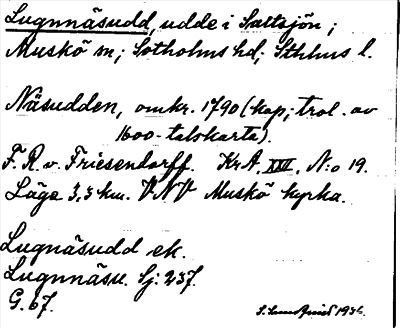 Lugnnäsudd, udde i Saltsjön;
Muskö sn; Sotholms hd; Sthlms l.
Näsudden, omkr. 1790 (kop; trol. av
1600-talskarta).
F. R. v. Friesendorff. KrA. XVI, N:o 19.
Läge 3,3 km. VNV Muskö kyrka.
Lugnäsudd ek.
Lugnnäsu. Sj: 237.
G. 67.
1936.